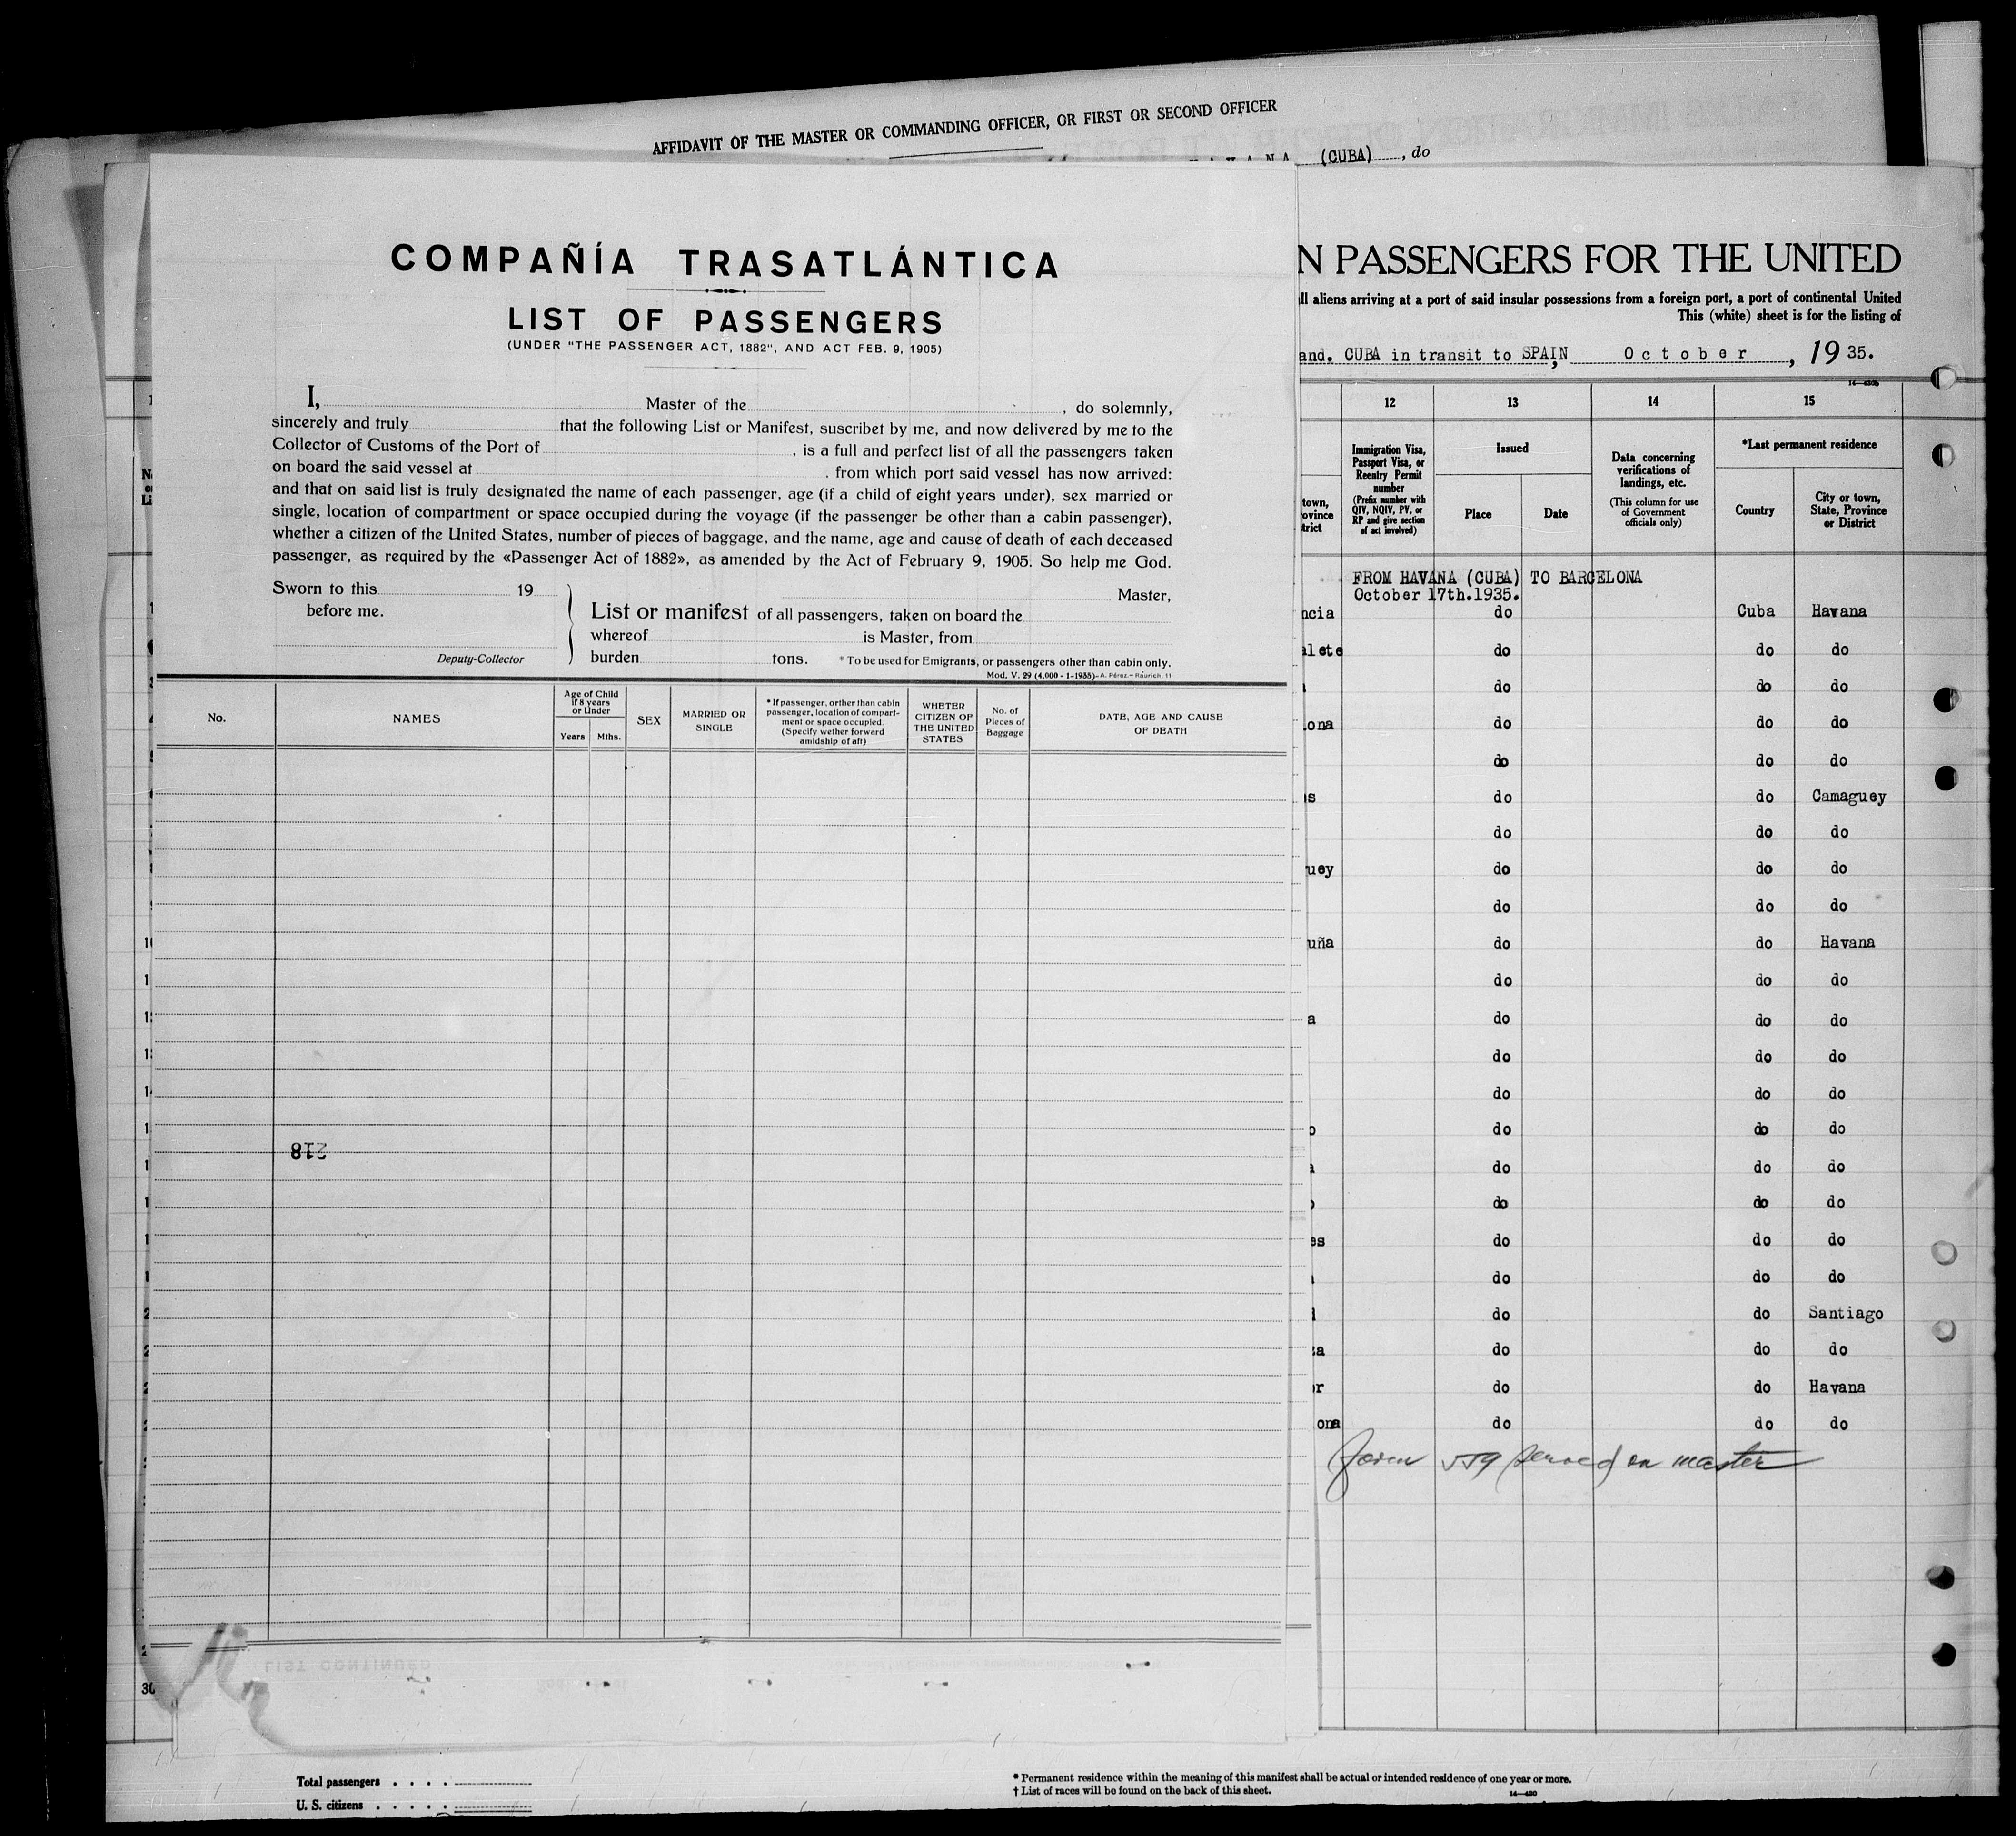 AFFIDAVIT OF THE MASTER OR COMMANDING OFFICER, OR FIRST OR SECOND OFFICER
(CUBA), do
COMPAÑÍA TRASATLÁNTICA
LIST OF PASSENGERS
(UNDER "THE PASSENGER ACT, 1882", AND ACT FEB. 9, 1905)
I, Master of the , do solemnly,
sincerely and truly that the following List or Manifest, suscribet by me, and now delivered by me to the
Collector of Customs of the Port of , is a full and perfect list of all the passengers taken
on board the said vessel at . from which port said vessel has now arrived:
and that on said list is truly designated the name of each passenger, age (if a child of eight years under), sex married or
single, location of compartment or space occupied during the voyage (if the passenger be other than a cabin passenger),
whether a citizen of the United States, number of pieces of baggage, and the name, age and cause of death of each deceased
passenger, as required by the «Passenger Act of 1882», as amended by the Act of February 9, 1905. So help me God.
Sworn to this 19
before me.
Deputy-Collector
Master,
List or manifest of all passengers, taken on board the
whereof is Master, from
burden tons. * To be used for Emigrants, or passengers other than cabin only.
Mod. V. 29 (4,000 - 1-1935)-A. Pérez.-Raurich, 11
No.
NAMES
Age of Child
if 8 years
or Under
Years Mths.
SEX
MARRIED OR
SINGLE
* If passenger, orther than cabin
passenger, location of compart-
ment or space occupied.
(Specify wether forward
amidship of aft)
WHETER
CITIZEN OF
THE UNITED
STATES
No. of
Pieces of
Baggage
DATE, AGE AND CAUSE
OF DEATH
218
N PASSENGERS FOR THE UNITED
ll aliens arriving at a port of said insular possessions from a foreign port, a port of continental United
This (white) sheet is for the listing of
and. CUBA in transit to SPAIN, October, 19 35.
14—430b
12 13 14 15
Immigration Visa,
Passport Visa, or
Reentry Permit
number
(Prefix number with
QIV, NQIV, PV, or
RP and give section
of act involved)
Issued
Place Date
Data concerning
verifications of
landings, etc.
(This column for use
of Government
officials only)
*Last permanent residence
Country
City or town,
State, Province
or District
town,
ovince
trict
FROM HAVANA (CUBA) TO BARCELONA
October 17th.1935.
ncia do Cuba Havana
alete do do do
do do do
ona do do do
do do do
s do do Camaguey
do do do
uey do do do
do do do
uña do do Havana
do do do
a do do do
do do do
do do do
o do do do
do do do
do do do
es do do do
do do do
do do Santiago
za do do do
or do do Havana
ona do do do
Form 559 served on master
10
30
Total passengers . . . .
U. S. citizens . . . . .
* Permanent residence within the meaning of this manifest shall be actual or intended residence of one year or more.
† List of races will be found on the back of this sheet.
14—430